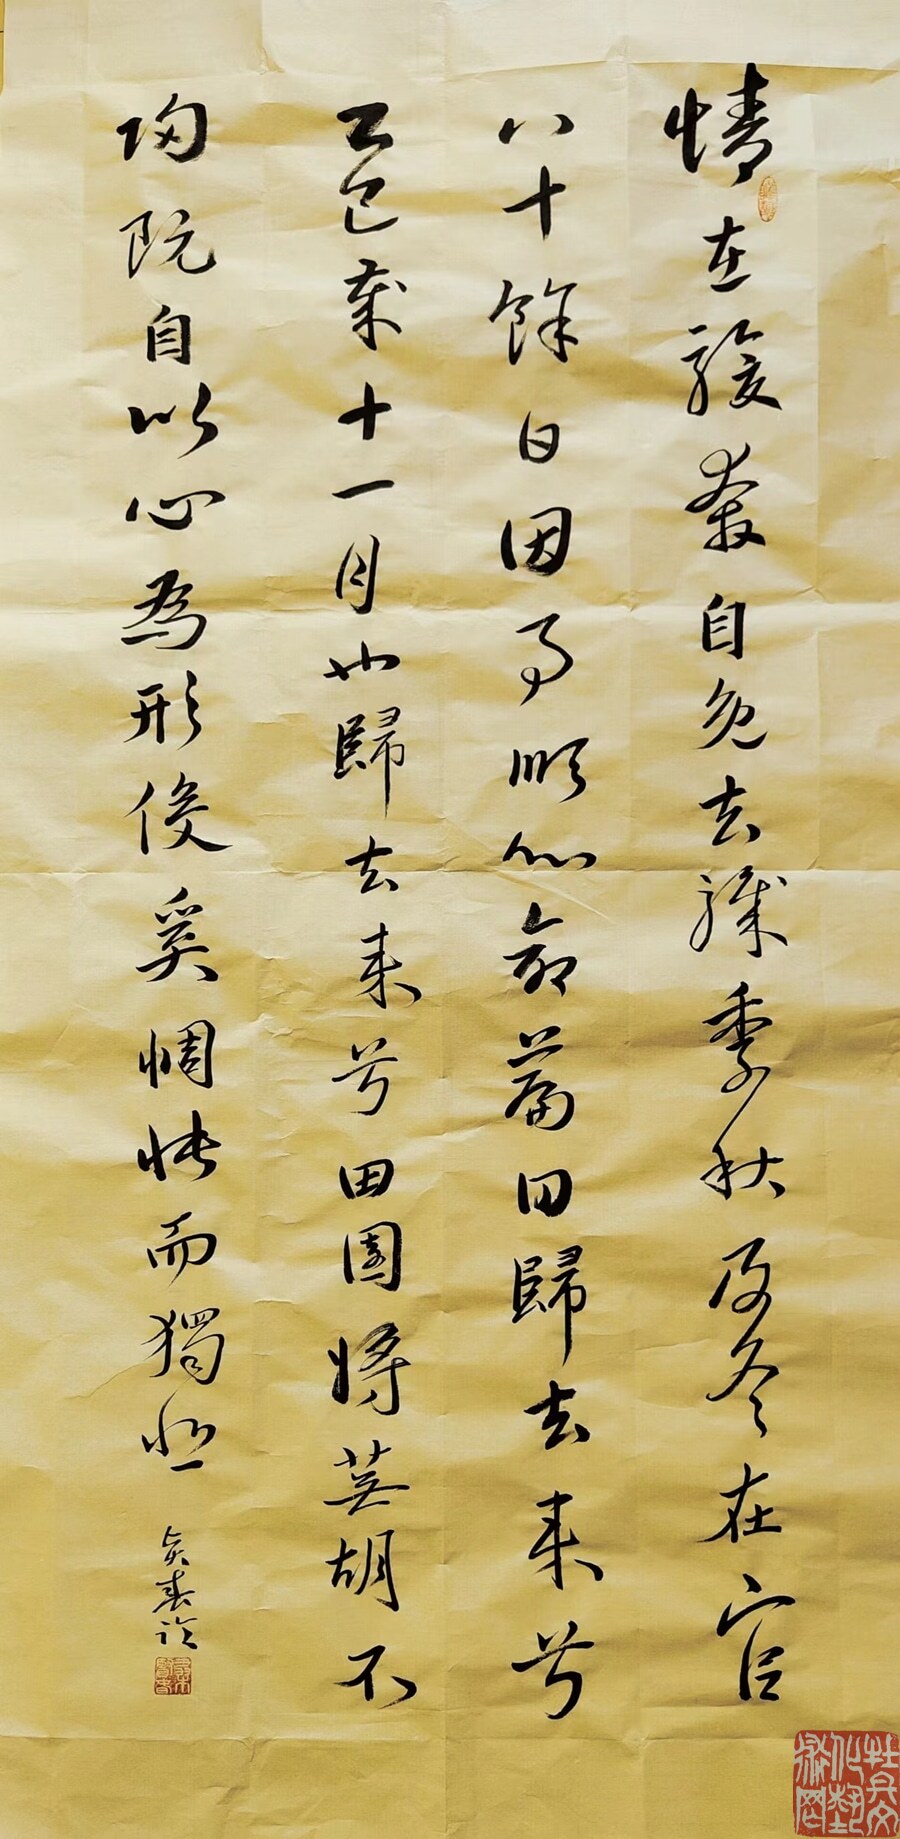 情在駿奔自免去職季秋及冬在官
八十餘日因事順心命篇曰歸去来兮
乙巳歲十一月也歸去来兮田園將蕪胡不
歸既自以心為形役奚惆悵而獨悲